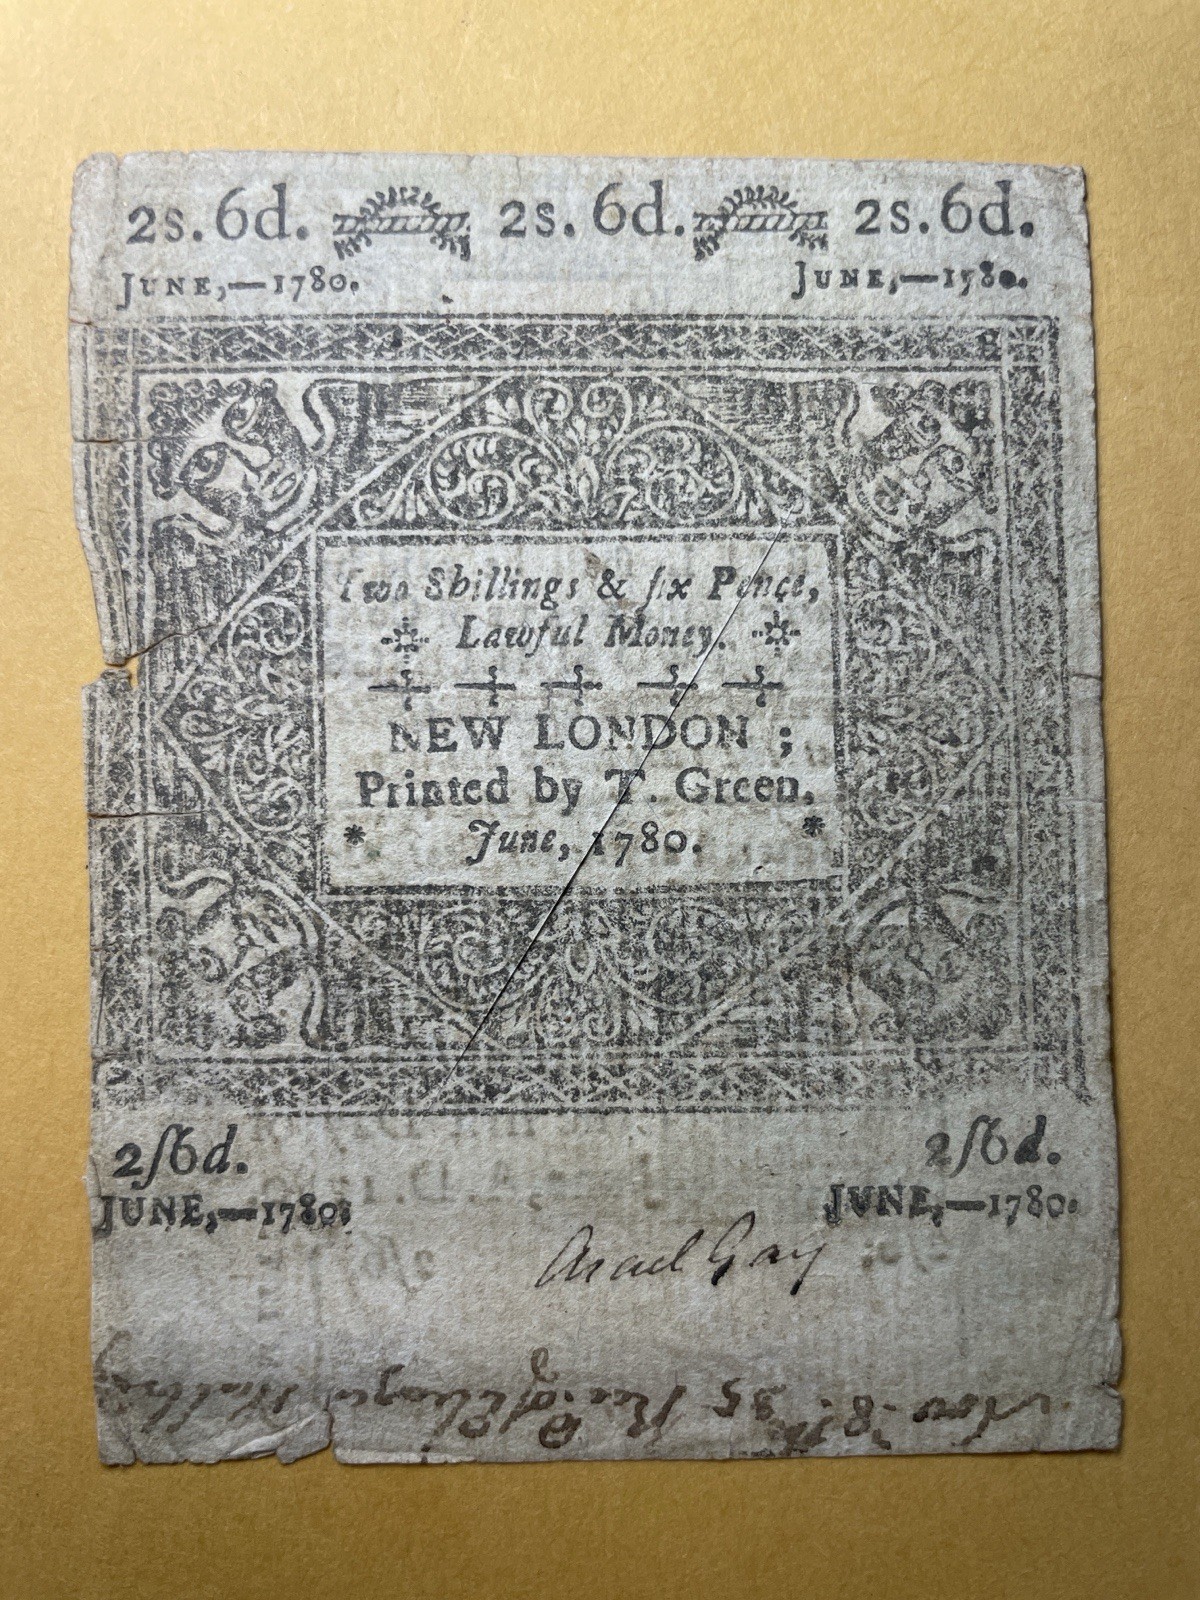 2s. 6d. 2s. 6d. 2s. 6d.
JUNE,—1780. JUNE,—1780.
Two Shillings & ſix Pence,
Lawful Money.
NEW LONDON ;
Printed by T. Green.
* June, 1780. *
2ſ6d. 2ſ6d.
JUNE,—1780. JUNE,—1780.
Gay
Nov. 8th 95